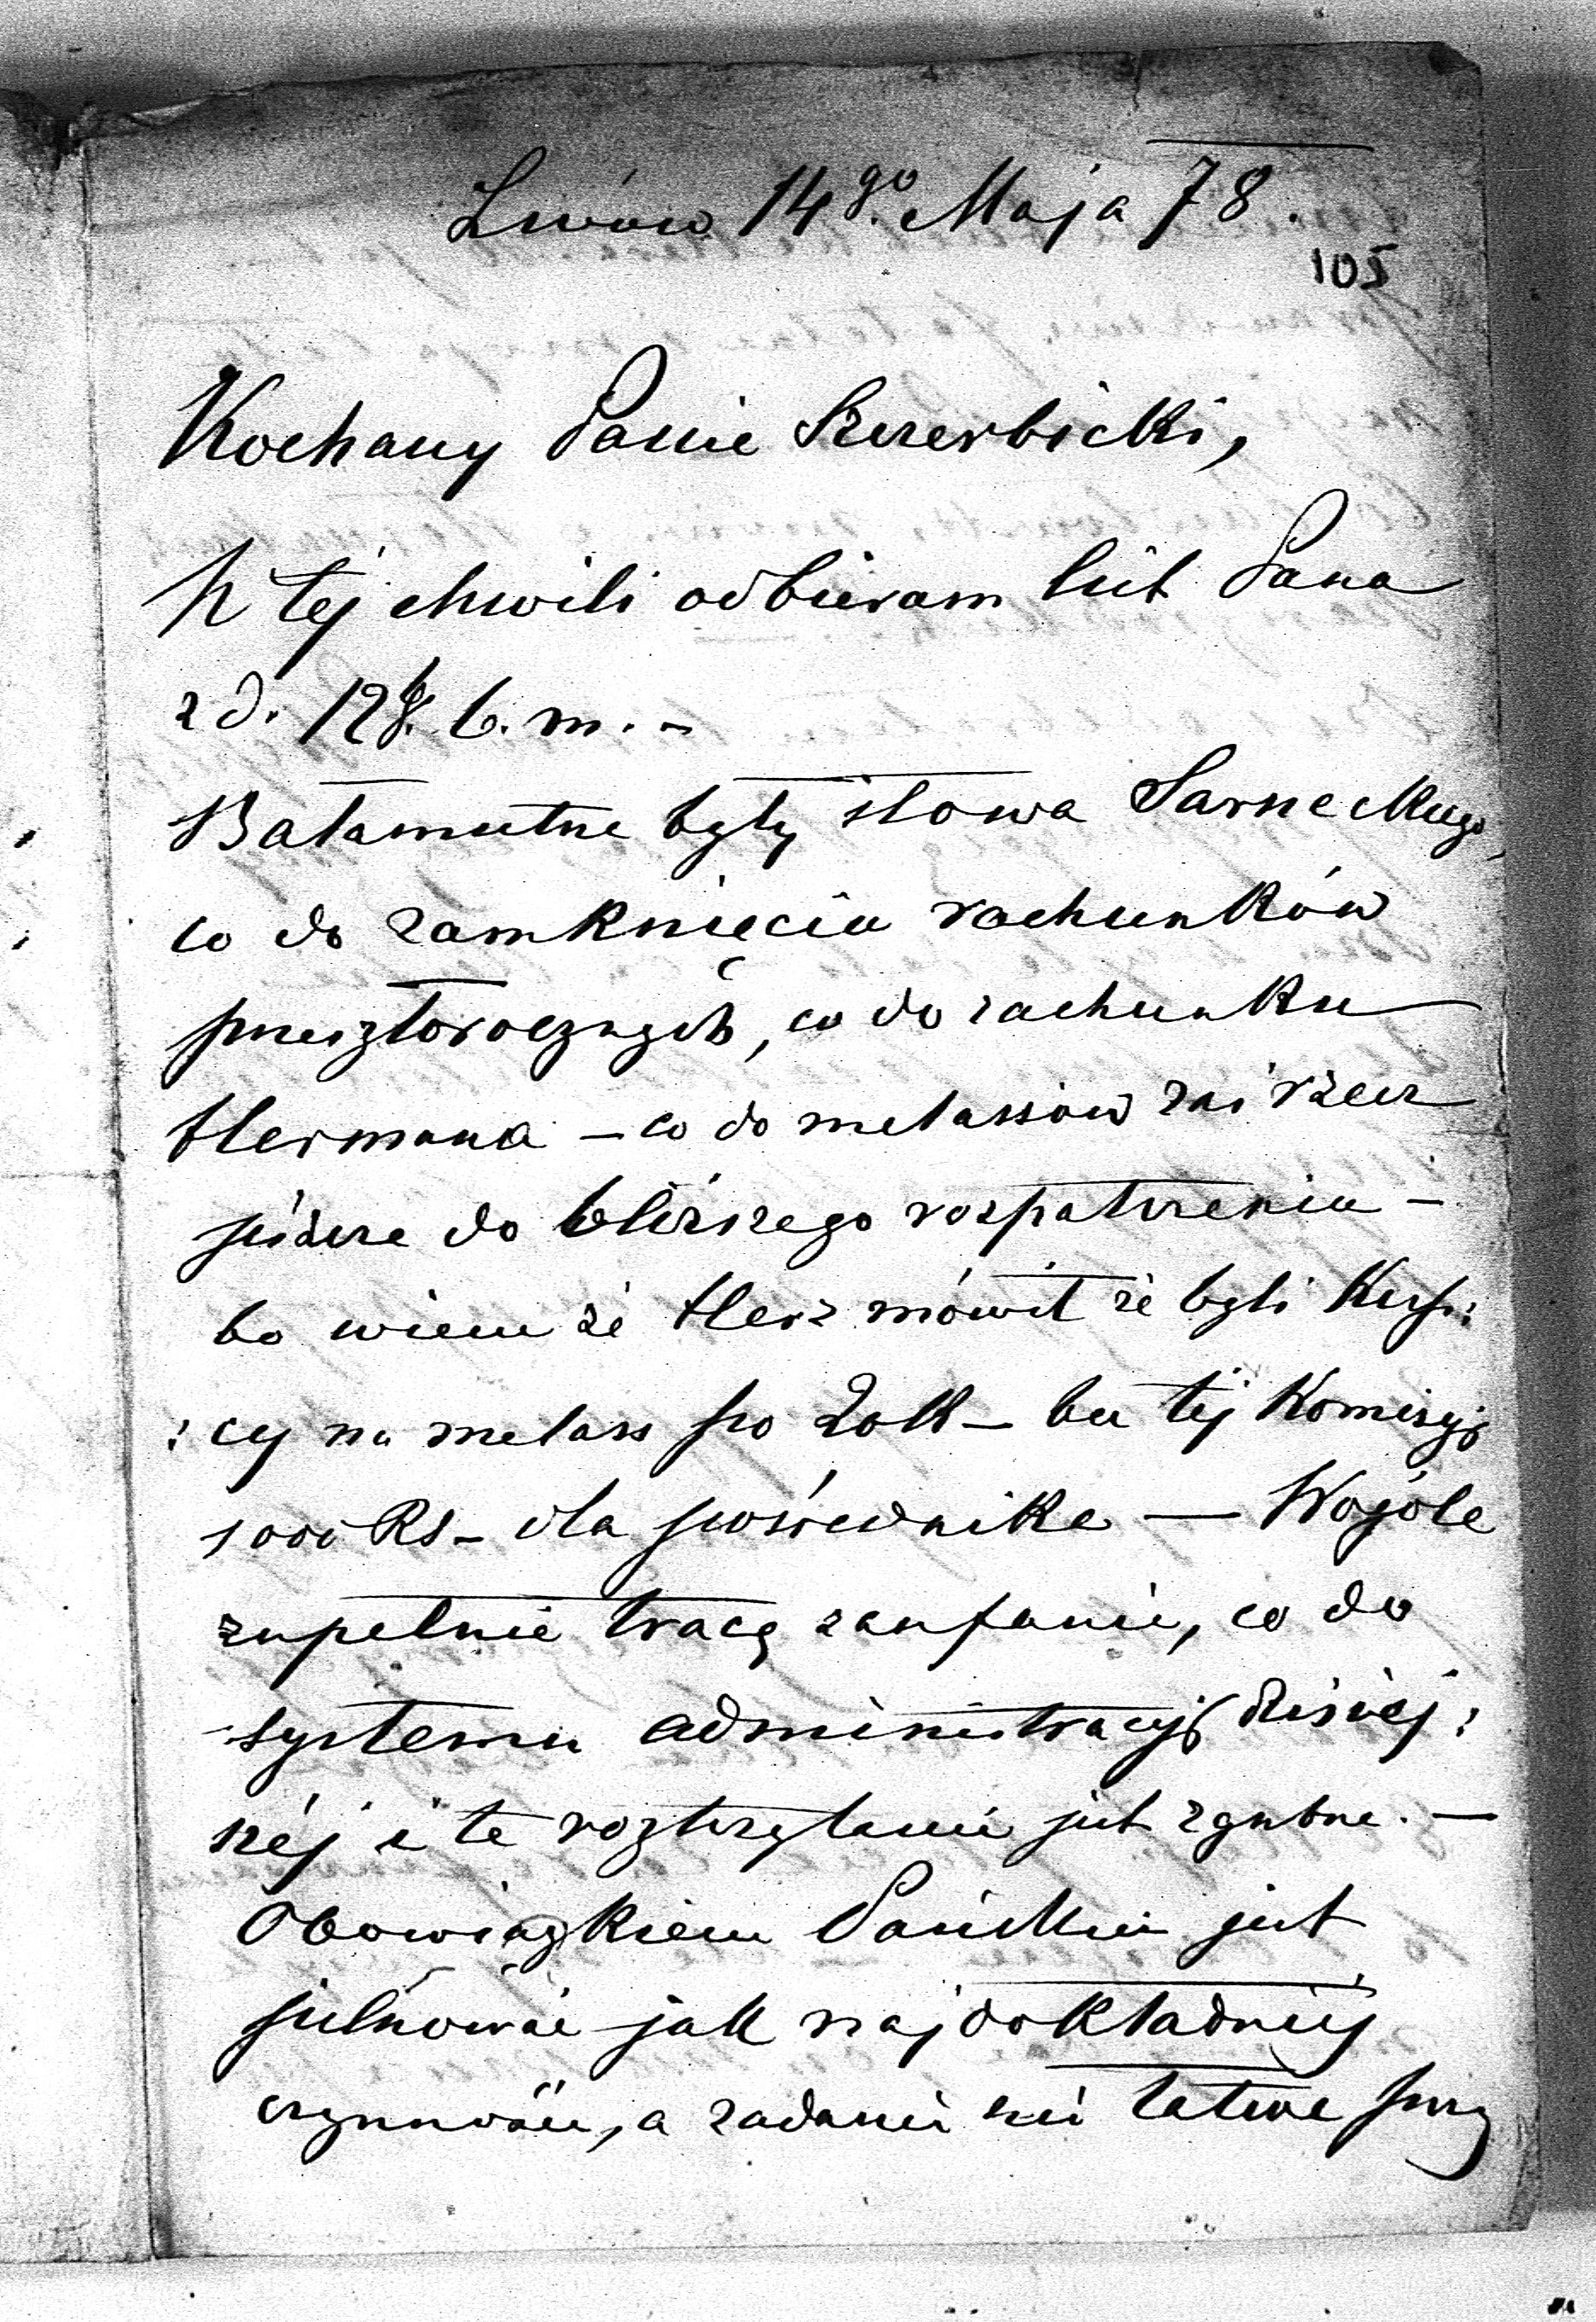 Lwów 14go. Maja 78.
105
Kochany Panie Szczerbicki,
W tej chwili odbieram list Pana
z d. 12g. b. m. –
Bałamutne były słowa Sarneckiego,
co do zamknięcia rachunków
przeszłorocznych, co do rachunku
Hermana – co do melassów zaś rzecz
jeszcze do bliższego rozpatrzenia –
bo wiem że Herz mówił że byli Kup:
:cy na melass po 20 k – bez tej Komisyji
1000 Rs – dla pośrednika — Wogóle
zupełnie tracę zaufanie, co do
systemu administracyji dzisiej:
szej i te roztrzęsienie jest zgubne. —
Obowiązkiem Pańskim jest
pilnować jak najdokładniej
czynności, a zadanie nie łatwe przy